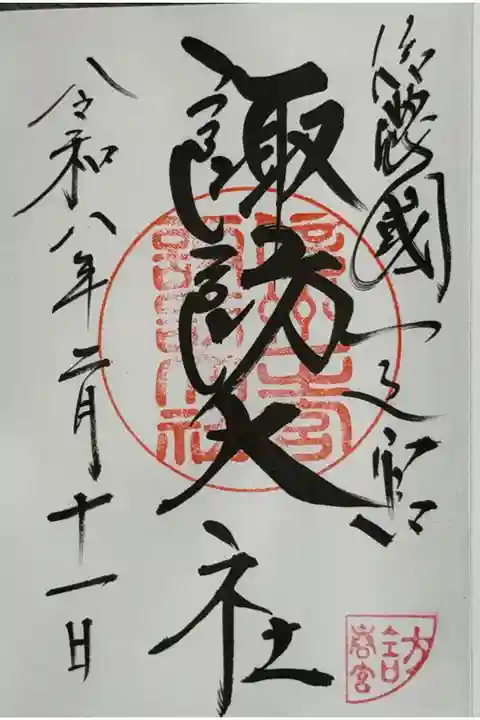 信濃國一之宮
諏訪大社
令和八年二月十一日
春宮